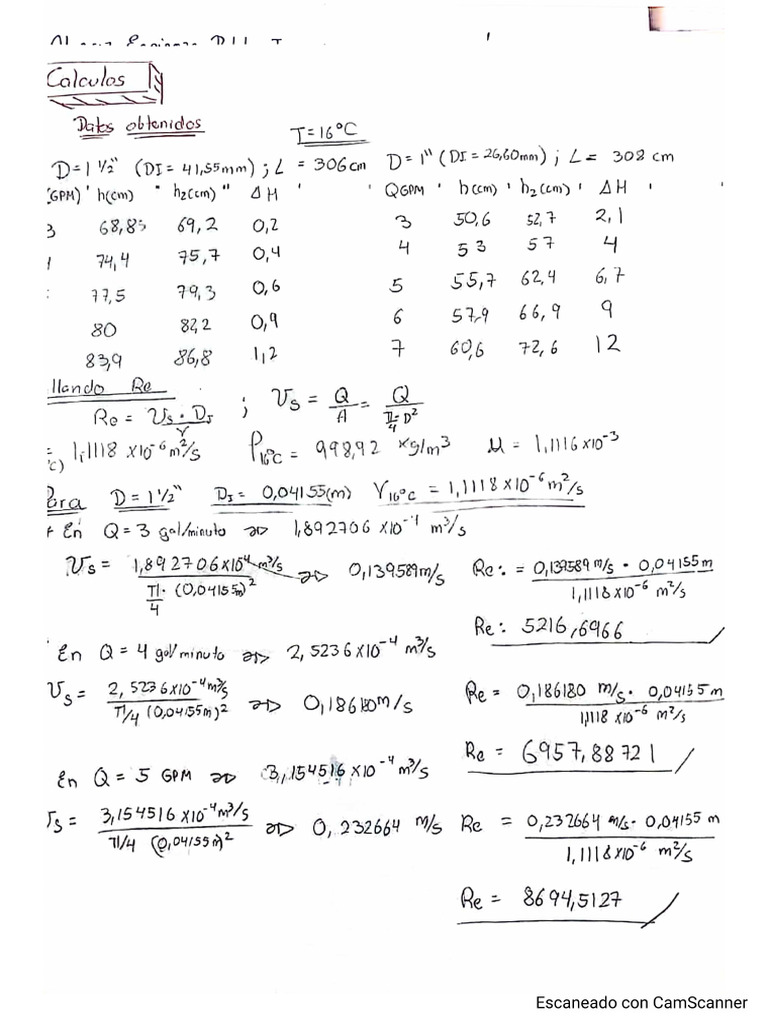 Calculos
Datos obtenidos
T=16°C
D=1 1/2" (DI = 41,55mm) ; L = 306cm D=1" (DI=26,60mm) ; L = 308 cm
(GPM) h(cm) h2(cm) ΔH QGPM h(cm) h2(cm) ΔH
3 68,85 69,2 0,2 3 50,6 52,7 2,1
74,4 75,7 0,4 4 53 57 4
77,5 79,3 0,6 5 55,7 62,4 6,7
80 82,2 0,9 6 57,9 66,9 9
83,9 86,8 1,2 7 60,6 72,6 12
llando Re
Re = Us · DI / γ ; Us = Q/A = Q / (π/4 D²)
°C) = 1,1118 x10⁻⁶ m²/s ρ16°C = 998,92 kg/m³ μ = 1,1116x10⁻³
Para D = 1 1/2" DI = 0,04155(m) γ16°C = 1,1118x10⁻⁶ m²/s
+ En Q = 3 gal/minuto => 1,892706 x10⁻⁴ m³/s
Us = 1,892706x10⁻⁴ m³/s / (π/4 · (0,04155m)²) => 0,139589m/s Re: = 0,139589 m/s · 0,04155m / 1,1118x10⁻⁶ m²/s
Re: 5216,6966
En Q = 4 gal/minuto => 2,5236x10⁻⁴ m³/s
Us = 2,5236x10⁻⁴ m³/s / (π/4 (0,04155m)²) => 0,186180m/s Re = 0,186180 m/s · 0,04155m / 1,1118 x10⁻⁶ m²/s
Re = 6957,88721
En Q = 5 GPM => 3,154516 x10⁻⁴ m³/s
Us = 3,154516 x10⁻⁴ m³/s / (π/4 (0,04155m)²) => 0,232664 m/s Re = 0,232664 m/s · 0,04155 m / 1,1118x10⁻⁶ m²/s
Re = 8694,5127
Escaneado con CamScanner